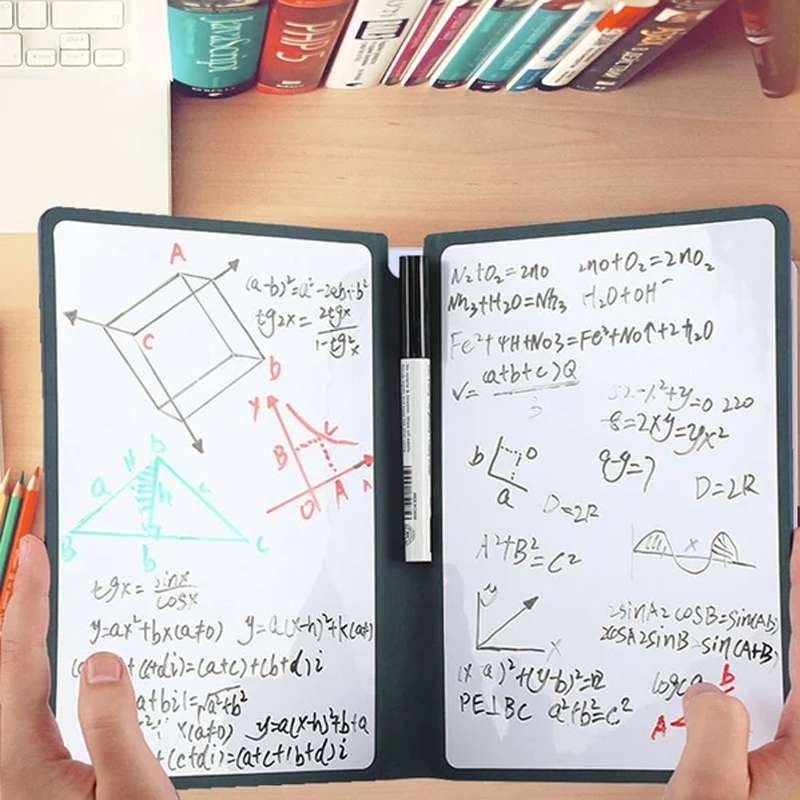 JavaScript
PHP 5
A
C
b
(a-b)²=a²-2ab+b²
tg2x=2tgx
1-tg²x
Y
B
C
O
A
b
H
a
h
c
B
b
C
tgx=sinx
cosx
y=ax²+bx(a≠0) y=a(x-h)²+k(a≠0)
+(c+di)=(a+c)+(b+d)i
a+bi|=√a²+b²
x(a≠0) y=a(x-h)²+b+a
+(c+di)=(a+c+(b+d)i
N₂+O₂=2no 2no+O₂=2nO₂
Nh₃+H₂O=Nh₃ H₂O+OH⁻
Fe²+4H+No3=Fe³+No↑+2h₂O
V=(a+b+c)Q
3
52-x²+y=0 220
-8=2xy=yx²
b
o
a
q-y=7
D=2R
D=2R
A²+B²=C²
x
y
x
2sinA2cosB=sin(Ab)
2cosA2sinB=sin(A+B)
(x-a)²+(y-b)²=12
PE⊥BC a²+b²=c²
logca
b
A